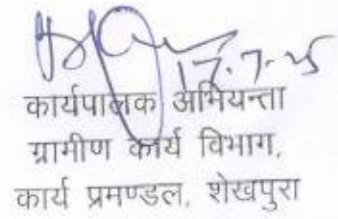 17.7.25
कार्यपालक अभियन्ता
ग्रामीण कार्य विभाग,
कार्य प्रमण्डल, शेखपुरा